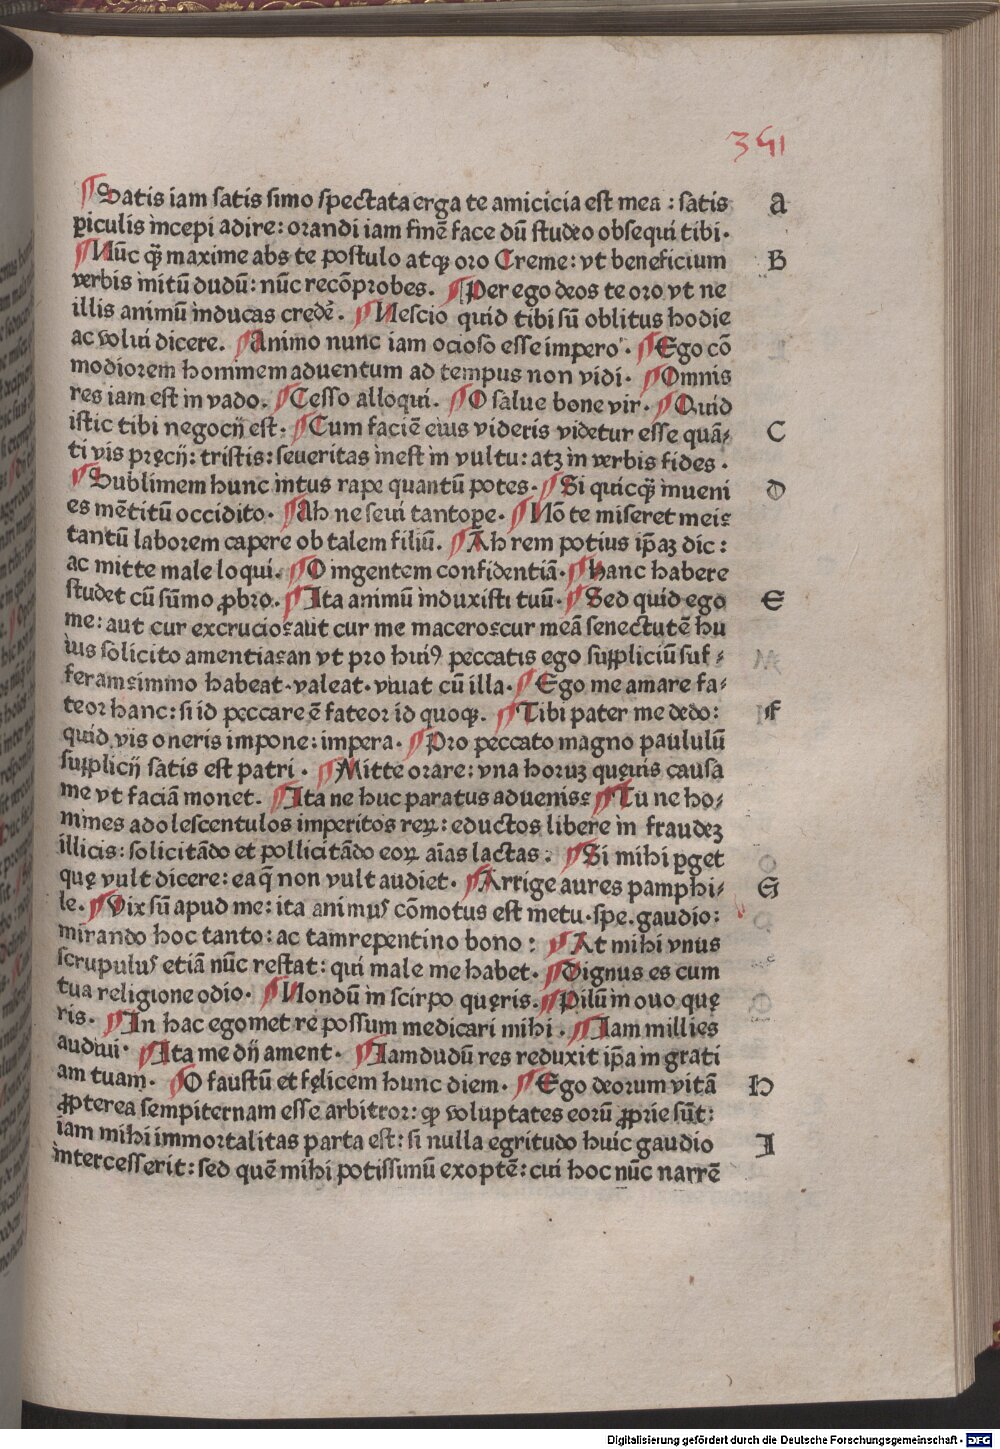 341
¶Satis iam satis simo spectata erga te amicicia est mea : satis
ꝑiculis incepi adire: orandi iam finē face dū studeo obsequi tibi.
¶Nūc qꝫ̄ maxime abs te postulo atqꝫ oro Creme: vt beneficium
verbis initū dudū: nūc recōprobes. ¶Per ego deos te oro vt ne
illis animū inducas credē. ¶Nescio quid tibi sū oblitus hodie
ac volui dicere. ¶Animo nunc iam ocioso esse impero. ¶Ego cō
modiorem hominem aduentum ad tempus non vidi. ¶Omnis
res iam est in vado. ¶Cesso alloqui. ¶O salue bone vir. ¶Quid
istic tibi negocij est. ¶Cum faciē eius videris videtur esse quā⸗
ti vis pręcij: tristis: seueritas inest in vultu: atꝫ in verbis fides.
¶Sublimem hunc intus rape quantū potes. ¶Si quicqꝫ̄ inueni
es mētitū occidito. ¶Ah ne seui tantoꝑe. ¶Nō te miseret meis
tantū laborem capere ob talem filiū. ¶Ah rem potius ip̄aꝫ dic :
ac mitte male loqui. ¶O ingentem confidentiā. ¶Hanc habere
studet cū sūmo ꝓbro. ¶Ita animū induxisti tuū. ¶Sed quid ego
me: aut cur excrucio: aut cur me macero: cur meā senectutē hu
ius solicito amentia: an vt pro huiꝰ peccatis ego suppliciū suf⸗
feram: immo habeat. valeat. viuat cū illa. ¶Ego me amare fa⸗
teor hanc: si id peccare ē fateor id quoqꝫ. ¶Tibi pater me dedo:
quid vis oneris impone: impera. ¶Pro peccato magno paululū
supplicij satis est patri. ¶Mitte orare: vna horuꝫ queuis causa
me vt faciā monet. ¶Ita ne huc paratus aduenis: ¶Tu ne ho⸗
mines adolescentulos imperitos reꝝ: eductos libere in fraudeꝫ
illicis: solicitādo et pollicitādo eoꝝ aīas lactas. ¶Si mihi ꝑget
quę vult dicere: ea q̄ non vult audiet. ¶Arrige aures pamphi⸗
le. ¶Vix sū apud me: ita animuꝰ cōmotus est metu. spe. gaudio:
mirando hoc tanto: ac tam repentino bono : ¶At mihi vnus
scrupuluꝰ etiā nūc restat: qui male me habet. ¶Dignus es cum
tua religione odio. ¶Nondū in scirpo quęris. ¶Pilū in ouo quę
ris. ¶In hac egomet re possum medicari mihi. ¶Iam millies
audiui. ¶Ita me dij ament. ¶Iamdudū res reduxit ip̄a in grati
am tuam. ¶O faustū et fęlicem hunc diem. ¶Ego deorum vitā
ꝓpterea sempiternam esse arbitror: ꝙ voluptates eorū ꝓprie sūt:
iam mihi immortalitas parta est: si nulla egritudo huic gaudio
intercesserit: sed quē mihi potissimū exoptē: cui hoc nūc narrē
A
B
C
D
E
F
G
H
I
Digitalisierung gefördert durch die Deutsche Forschungsgemeinschaft - DFG